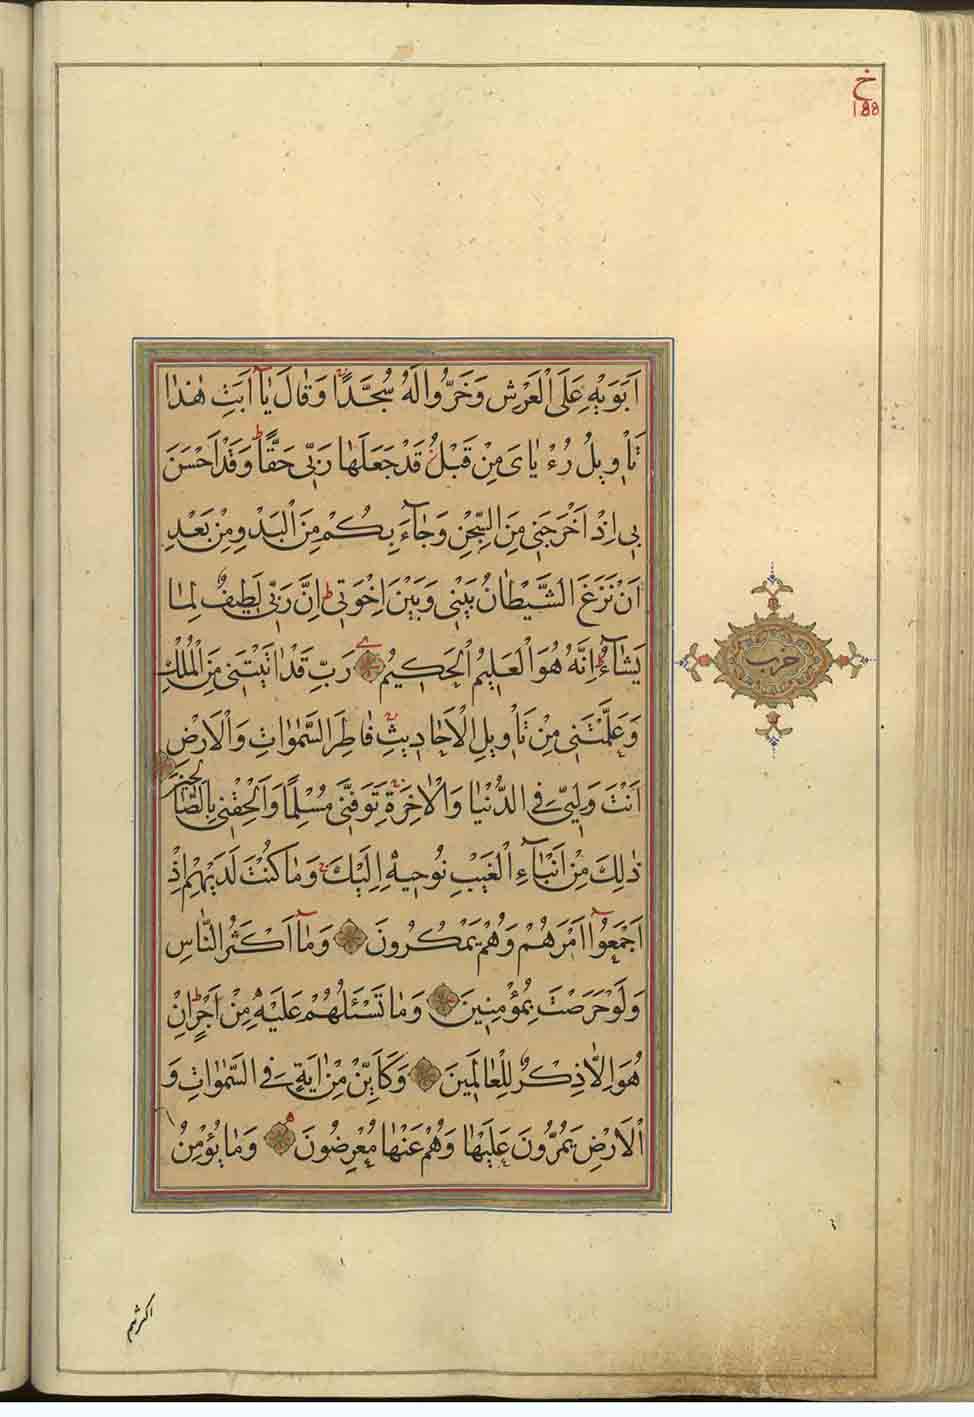 خ
١٥٥
اَبَوَيْهِ عَلَى الْعَرْشِ وَخَرُّوا لَهُ سُجَّدًا وَقٰالَ يٰٓا اَبَتِ هٰذٰا
تَاْوِيلُ رُءْيٰاىَ مِنْ قَبْلُ قَدْ جَعَلَهٰا رَبّٖى حَقًّا وَقَدْ اَحْسَنَ
بٖى اِذْ اَخْرَجَنٖى مِنَ السِّجْنِ وَجٰٓاءَ بِكُمْ مِنَ الْبَدْوِ مِنْ بَعْدِ
اَنْ نَزَغَ الشَّيْطٰانُ بَيْنٖى وَبَيْنَ اِخْوَتٖى اِنَّ رَبّٖى لَطٖيفٌ لِمٰا
يَشٰٓاءُ اِنَّهُ هُوَ الْعَلٖيمُ الْحَكٖيمُ رَبِّ قَدْ اٰتَيْتَنٖى مِنَ الْمُلْكِ
وَعَلَّمْتَنٖى مِنْ تَاْوٖيلِ الْاَحٰادٖيثِ فٰاطِرَ السَّمٰوٰاتِ وَالْاَرْضِ
اَنْتَ وَلِيّٖى فِى الدُّنْيٰا وَالْاٰخِرَةِ تَوَفَّنٖى مُسْلِمًا وَاَلْحِقْنٖى بِالصّٰالِحٖينَ
ذٰلِكَ مِنْ اَنْبٰٓاءِ الْغَيْبِ نُوحٖيهِ اِلَيْكَ وَمٰا كُنْتَ لَدَيْهِمْ اِذْ
اَجْمَعُٓوا اَمْرَهُمْ وَهُمْ يَمْكُرُونَ وَمٰٓا اَكْثَرُ النّٰاسِ
وَلَوْ حَرَصْتَ بِمُؤْمِنٖينَ وَمٰا تَسْـَٔلُهُمْ عَلَيْهِ مِنْ اَجْرٍ اِنْ
هُوَ اِلّٰا ذِكْرٌ لِلْعٰالَمٖينَ وَكَاَيِّنْ مِنْ اٰيَةٍ فِى السَّمٰوٰاتِ وَ
الْاَرْضِ يَمُرُّونَ عَلَيْهٰا وَهُمْ عَنْهٰا مُعْرِضُونَ وَمٰا يُؤْمِنُ
حزب
اكثرهم